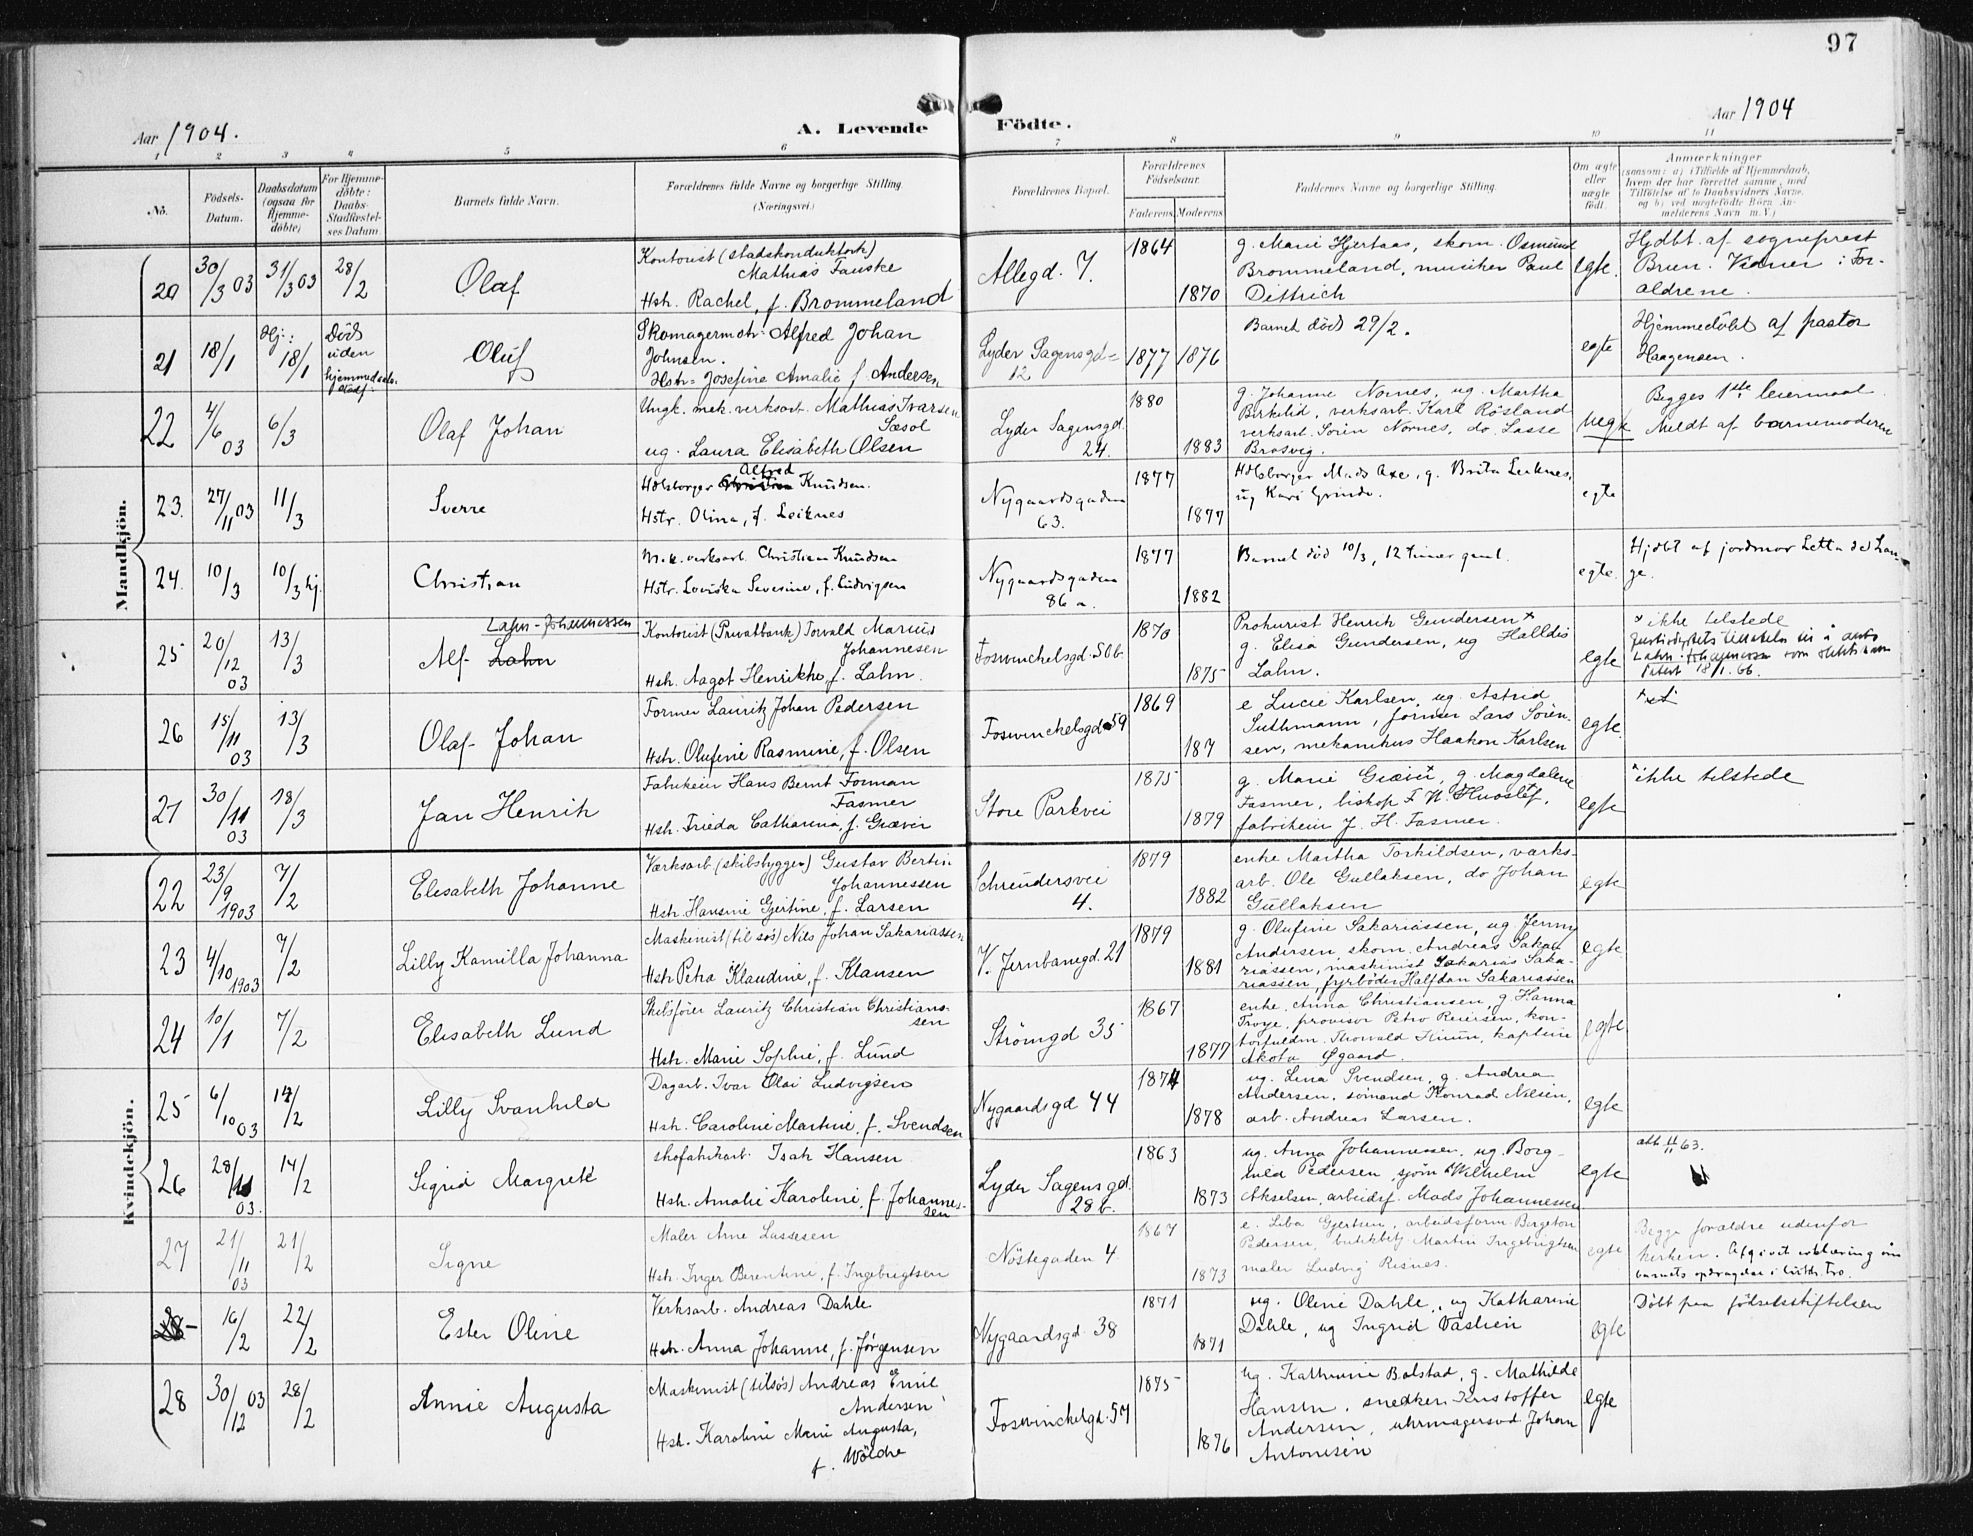 97
Aar 1904.
A. Levende Födte.
Aar 1904
1 2 3 4 5 6 7 8 9 10 11
No.
Födsels-Datum.
Daabsdatum (ogsaa for Hjemme-döbte)
For Hjemme-döbte: Daabs-Stadfæstel-ses Datum
Barnets fulde Navn.
Forældrenes fulde Navne og borgerlige Stilling (Næringsvei.)
Forældrenes Bopæl.
Forældrenes Födselsaar.
Faderens Moderens
Faddernes Navne og borgerlige Stilling.
Om ægte eller uægte födt.
Anmærkninger
(saasom: a) i Tilfælde af Hjemmedaab,
hvem der har forrettet samme, med
Tilföielse af to Daabsvidners Navne.
og b) ved uægtefödte Börn An-
melderens Navn m. V.)
Mandkjön.
20 30/3 03 31/3 03 28/2 Olaf
Kontorist (stadskonduktork)
Mathias Fauske
Hstr. Rachel, f. Brommeland
Allegd. 7. 1864 1870
g. Marie Hjertaas, skom. Osmund
Brommeland, musiker Paul
Dittrich
egte.
Hjdbt. af sogneprest
Brun. Vidner: For-
ældrene.
21 18/1 Hj: 18/1 Död uden hjemmedaabs. stadf. Oluf
Skomagermstr. Alfred Johan
Johnsen.
Hstr. Josefine Amalie f. Andersen
Lyder Sagensgd. 12 1877 1876
Barnet död 29/2.
egte
Hjemmedöbt af pastor
Haagensen.
22 4/6 03 6/3 Olaf Johan
Ungk. mek. verksarb. Mathias Ivarsen
Sæsol
ug. Laura Elisabeth Olsen
Lyder Sagensgd. 24. 1880 1883
g. Johanne Nornes, ug. Martha
Birkelid, verksarb. Karl Røsland
verksarb. Sören Nornes, do. Lasse
Brosvig.
uegte
Begges 1ste leiermaal.
Meldt af barnemoderen
23. 27/11 03 11/3 Sverre
Alfred
Hdlsborger Christian Knudsen.
Hstr. Olina, f. Leiknes
Nygaardsgaden 63. 1877 1877
Hdlsborger Mads Axe, g. Brita Leiknes,
ug Kari Grinde.
egte
24. 10/3 10/3 hj. Christian
Mek. verksarb. Christian Knudsen
Hstr. Loviska Severine, f. Ludvigsen
Nygaardsgaden 86 a. 1877 1882
Barnet död 10/3, 12 timer gml.
egte.
Hjdbt af jordmor Letta de Lan-
ge.
25 20/12 03 13/3 Lahn-Johannessen
Alf Lahn
Kontorist (Privatbank) Torvald Marius
Johannesen
Hstr. Aagot Henrikke, f. Lahn.
Foswinckelsgd. 50b. 1870 1875
Prokurist Henrik Gundersen+
g. Elisa Gundersen, ug Halldis
Lahn.
egte
+ ikke tilstede
Lahn-Johannessen som slektsnavn
18/1. 66.
26 15/11 03 13/3 Olaf Johan
Former Lauritz Johan Pedersen
Hstr. Olufine Rasmine, f. Olsen
Foswinckelsgd 59 1869 187
e Lucie Karlsen, ug. Astrid
Suthmann, former Lars Sören-
sen, mekanikus Haakon Karlsen
egte.
27 30/11 03 18/3 Jan Henrik
Fabrikeier Hans Bernt Forman
Fasmer
Hstr. Frieda Catharina, f. Grævir
Store Parkvei 1875 1879
g. Marie Grævir+, g. Magdalene
Fasmer, biskop F. W. Hvoslef,
fabrikeier J. H. Fasmer.
egte
+ikke tilstede
Kvindekjön.
22 23/9 1903 7/2 Elisabeth Johanne
Værksarb (skibsbygger) Gustav Bertin
Johannessen
Hstr. Hansine Gjertine, f. Larsen
Schreudersvei 4. 1879 1882
enke Martha Torkildsen, værks-
arb. Ole Gullaksen, do Johan
Gullaksen
egte
23 4/10 1903 7/2 Lilly Kamilla Johanna
Maskinist (til søs) Nils Johan Sakariassen
Hstr Petra Klaudine, f. Klausen
V. Jernbanegd. 21 1879 1881
g. Olufine Sakariassen, ug. Jenny
Andersen, skom. Andreas Saka-
riassen, maskinist Sakarias Saka-
riassen, fyrböder Halfdan Sakariassen
egte.
24 10/1 7/2 Elisabeth Lund
Skibsförer Lauritz Christian Christians-
sen
Hstr. Marie Sophie, f. Lund
Strömgd 35 1867 1877
enke. Anna Christiansen, g. Hanna
Troye, provisor Petro Reiersen, kon-
torfuldm. Thorvald Knum, kaptein
Akota Øgaard.
egte.
25 6/10 03 14/2 Lilly Svanhild
Dagarb. Ivar Olai Ludvigsen
Hstr. Caroline Martine, f. Svendsen
Nygaardsgd 44 1874 1878
ug. Lina Svendsen, g. Andrea
Andersen, sömand Konrad Nilsen,
arb. Andreas Larsen.
egte
26 28/11 03. 14/2 Sigrid Margrete
skofabrikarb. Isak Hansen
Hstr. Amalie Karoline, f. Johannes-
sen
Lyder Sagensgd. 28b. 1863 1873
ug. Anna Johannessen, ug. Borg-
hild Pedersen, sjöm Wilhelm
Akselsen, arbeidsf. Mads Johannessen
egte
att. 11 63.
27 21/11 03 21/2 Signe
Maler Arne Lassesen
Hstr. Inger Berentine, f. Ingebrigtsen
Nöstegaden 4 1867 1873
e. Liba Gjertsen, arbeidsform. Bergeton
Pedersen, butikbetj. Martin Ingebrigtsen
maler Ludvig Risnes.
egte
Begge forældre udenfor
kirken. Afgivet erklæring om
barnets opdragelse i luth. tro.
28 16/2 22/2 Ester Oline
Verksarb. Andreas Dahle
Hstr. Anna Johanne, f. Jørgensen
Nygaardsgd. 38 1871 1871
ug. Oline Dahle, ug Katharine
Dahle, ug Ingrid Vaslien
egte
Döbt paa födselsstiftelsen
28 30/12 03 28/2 Annie Augusta
Maskinist (tilsøs) Andreas Emil
Andersen
Hstr. Karoline Marie Augusta,
f. Wöldre
Foswinckelgd. 57 1875 1876
ug. Kathrine Bolstad, g. Mathilde
Hansen, snedker Kristoffer
Andersen, uhrmagersvd Johan
Antonisen
egte